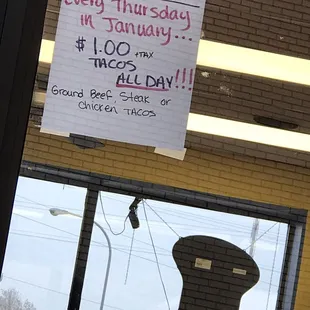 Every Thursday
in January...
$1.00 +TAX
TACOS
ALL DAY!!!
Ground Beef, Steak or
chicken TACOS